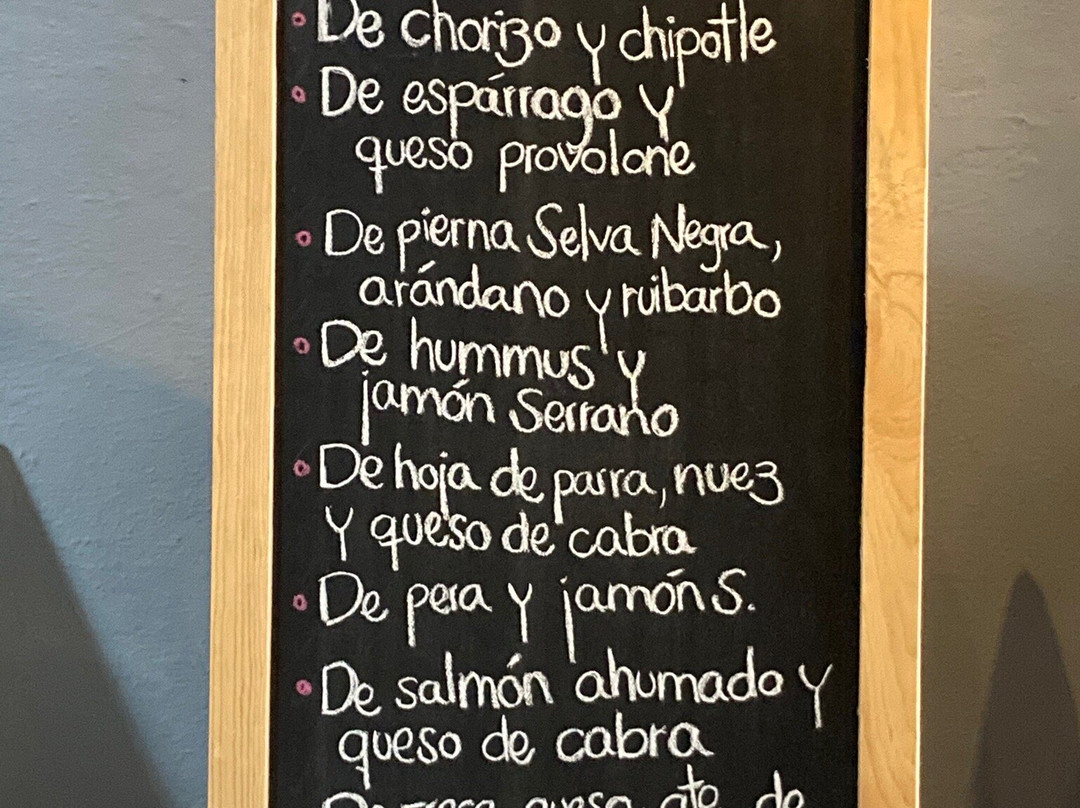 De chorizo y chipotle
De espárrago y
queso provolone
De pierna Selva Negra,
arándano y ruibarbo
De hummus y
jamón Serrano
De hoja de parra, nuez
y queso de cabra
De pera y jamón S.
De salmón ahumado y
queso de cabra
De queso ate de